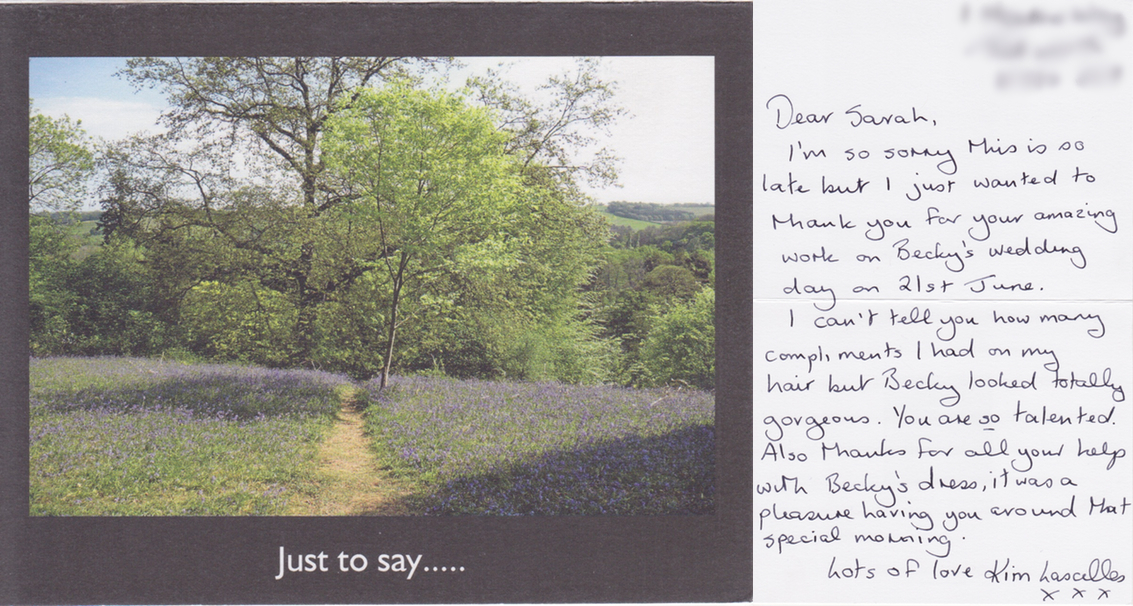 Just to say.....
Dear Sarah,
I'm so sorry this is so
late but I just wanted to
thank you for your amazing
work on Becky's wedding
day on 21st June.
I can't tell you how many
compliments I had on my
hair but Becky looked totally
gorgeous. You are so talented.
Also thanks for all your help
with Becky's dress, it was a
pleasure having you around that
special morning.
Lots of love Kim Lascelles
x x x